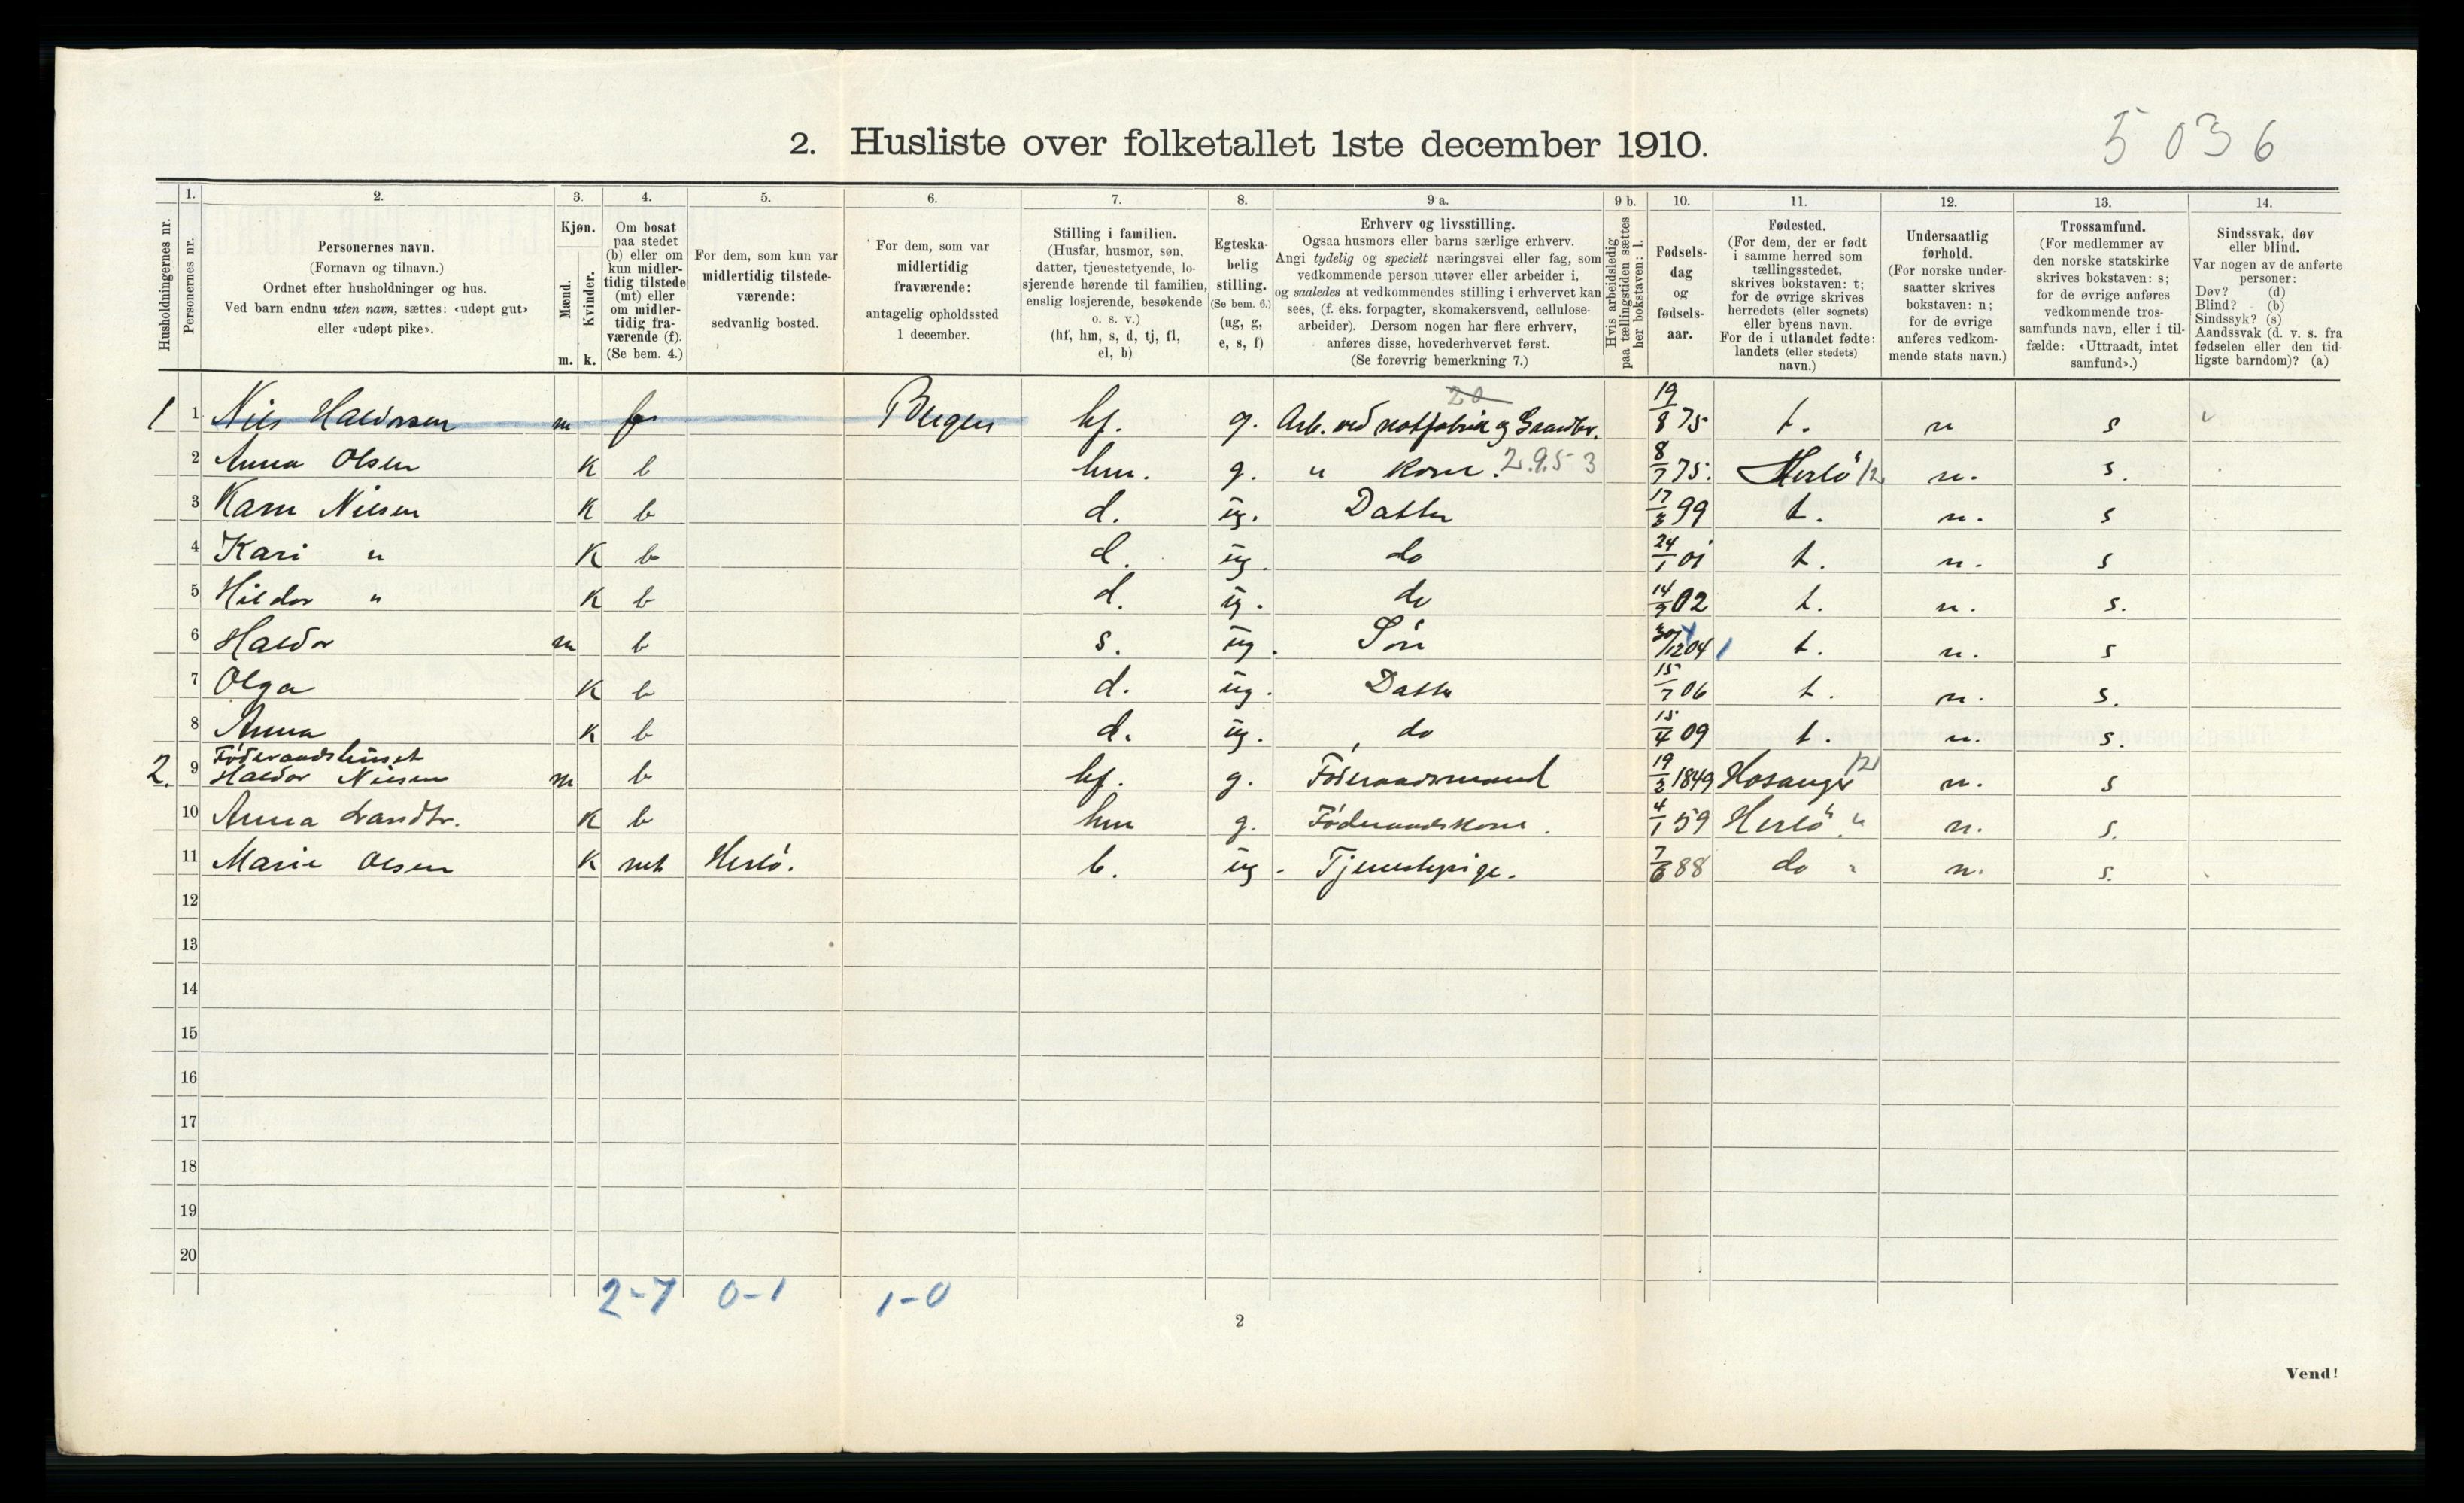 5036
2. Husliste over folketallet 1ste december 1910.
Husholdningernes nr.
1. Personernes nr.
2. Personernes navn. (Fornavn og tilnavn.) Ordnet efter husholdninger og hus. Ved barn endnu uten navn, sættes: «udøpt gut» eller «udøpt pike».
3. Kjøn. Mænd. m. Kvinder. k.
4. Om bosat paa stedet (b) eller om kun midlertidig tilstede (mt) eller om midlertidig fraværende (f). (Se bem. 4.)
5. For dem, som kun var midlertidig tilstedeværende: sedvanlig bosted.
6. For dem, som var midlertidig fraværende: antagelig opholdssted 1 december.
7. Stilling i familien. (Husfar, husmor, søn, datter, tjenestetyende, losjerende hørende til familien, enslig losjerende, besøkende o. s. v.) (hf, hm, s, d, tj, fl, el, b)
8. Egteskabelig stilling. (Se bem. 6.) (ug, g, e, s, f)
9 a. Erhverv og livsstilling. Ogsaa husmors eller barns særlige erhverv. Angi tydelig og specielt næringsvei eller fag, som vedkommende person utøver eller arbeider i, og saaledes at vedkommendes stilling i erhvervet kan sees, (f. eks. forpagter, skomakersvend, cellulosearbeider). Dersom nogen har flere erhverv, anføres disse, hovederhvervet først. (Se forøvrig bemerkning 7.)
9 b. Hvis arbeidsledig paa tællingstiden sættes her bokstaven: l.
10. Fødselsdag og fødselsaar.
11. Fødested. (For dem, der er født i samme herred som tællingsstedet, skrives bokstaven: t; for de øvrige skrives herredets (eller sognets) eller byens navn. For de i utlandet fødte: landets (eller stedets) navn.)
12. Undersaatlig forhold. (For norske undersaatter skrives bokstaven: n; for de øvrige anføres vedkommende stats navn.)
13. Trossamfund. (For medlemmer av den norske statskirke skrives bokstaven: s; for de øvrige anføres vedkommende trossamfunds navn, eller i tilfælde: «Uttraadt, intet samfund».)
14. Sindssvak, døv eller blind. Var nogen av de anførte personer: Døv? (d) Blind? (b) Sindssyk? (s) Aandssvak (d. v. s. fra fødselen eller den tidligste barndom)? (a)
20
1 1 Nils Haldorsen m f Bergen hf. g. Arb. ved notfabrik og Gaardbr. 19/8 75 t. n s
2 Anna Olsen K b hm. g. " Kone. 2.9.53 8/7 75. Herlö 12 n. s.
3 Karn Nilsen K b d. ug. Datter 17/3 99 t. n. s
4 Kari " K b d. ug. do 24/1 01 t. n. s
5 Hildor " K b d. ug. do 14/9 02 t. n. s.
6 Haldor m b s. ug. Sön 30/12 04 1 t. n. s
7 Olga K b d. ug. Datter 15/7 06 t. n. s.
8 Anna K b d. ug. do 15/4 09 t. n. s.
Föderaadshuset
2. 9 Haldor Nilsen m b hf. g. Föderaadsmand 19/2 1849 Hosanger 12 n. s
10 Anna Larsdtr. K b hm g. Föderaadskone. 4/1 59 Herlö " n. s.
11 Marie Olsen K mt Herlö. b. ug. Tjenestepige. 7/6 88 do " n. s.
12
13
14
15
16
17
18
19
20
2-7 0-1 1-0
2
Vend!